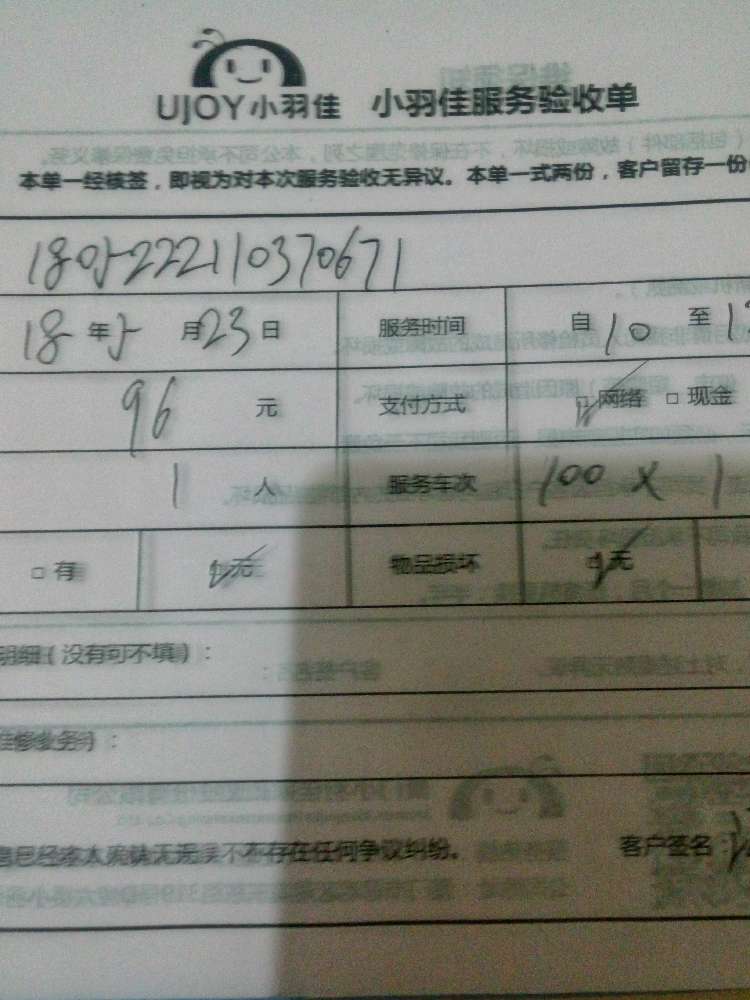 UJOY小羽佳 小羽佳服务验收单
本单一经核签，即视为对本次服务验收无异议。本单一式两份，客户留存一份
1805222110370671
18 年 5 月 23 日 服务时间 自 10 至 1
96 元 支付方式 □ 网络 □ 现金
1 人 服务车次 100 X 1
□ 有 □ 无 物品损坏 □ 无
明细（没有可不填）：
维修业务）：
已经本人确认无误不存在任何争议纠纷。 客户签名：